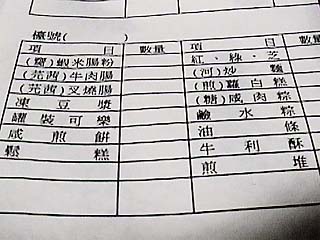 檯號(        )
項 目 數量 項 目 數量
(齋)蝦米腸粉 紅、綠、芝
(芫茜)牛肉腸 (河)炒 麵
(芫茜)叉燒腸 (煎)蘿白糕
凍豆漿 (糖)咸肉粽
罐裝可樂 鹼水粽
咸煎餅 油條
鬆糕 牛利酥
煎堆